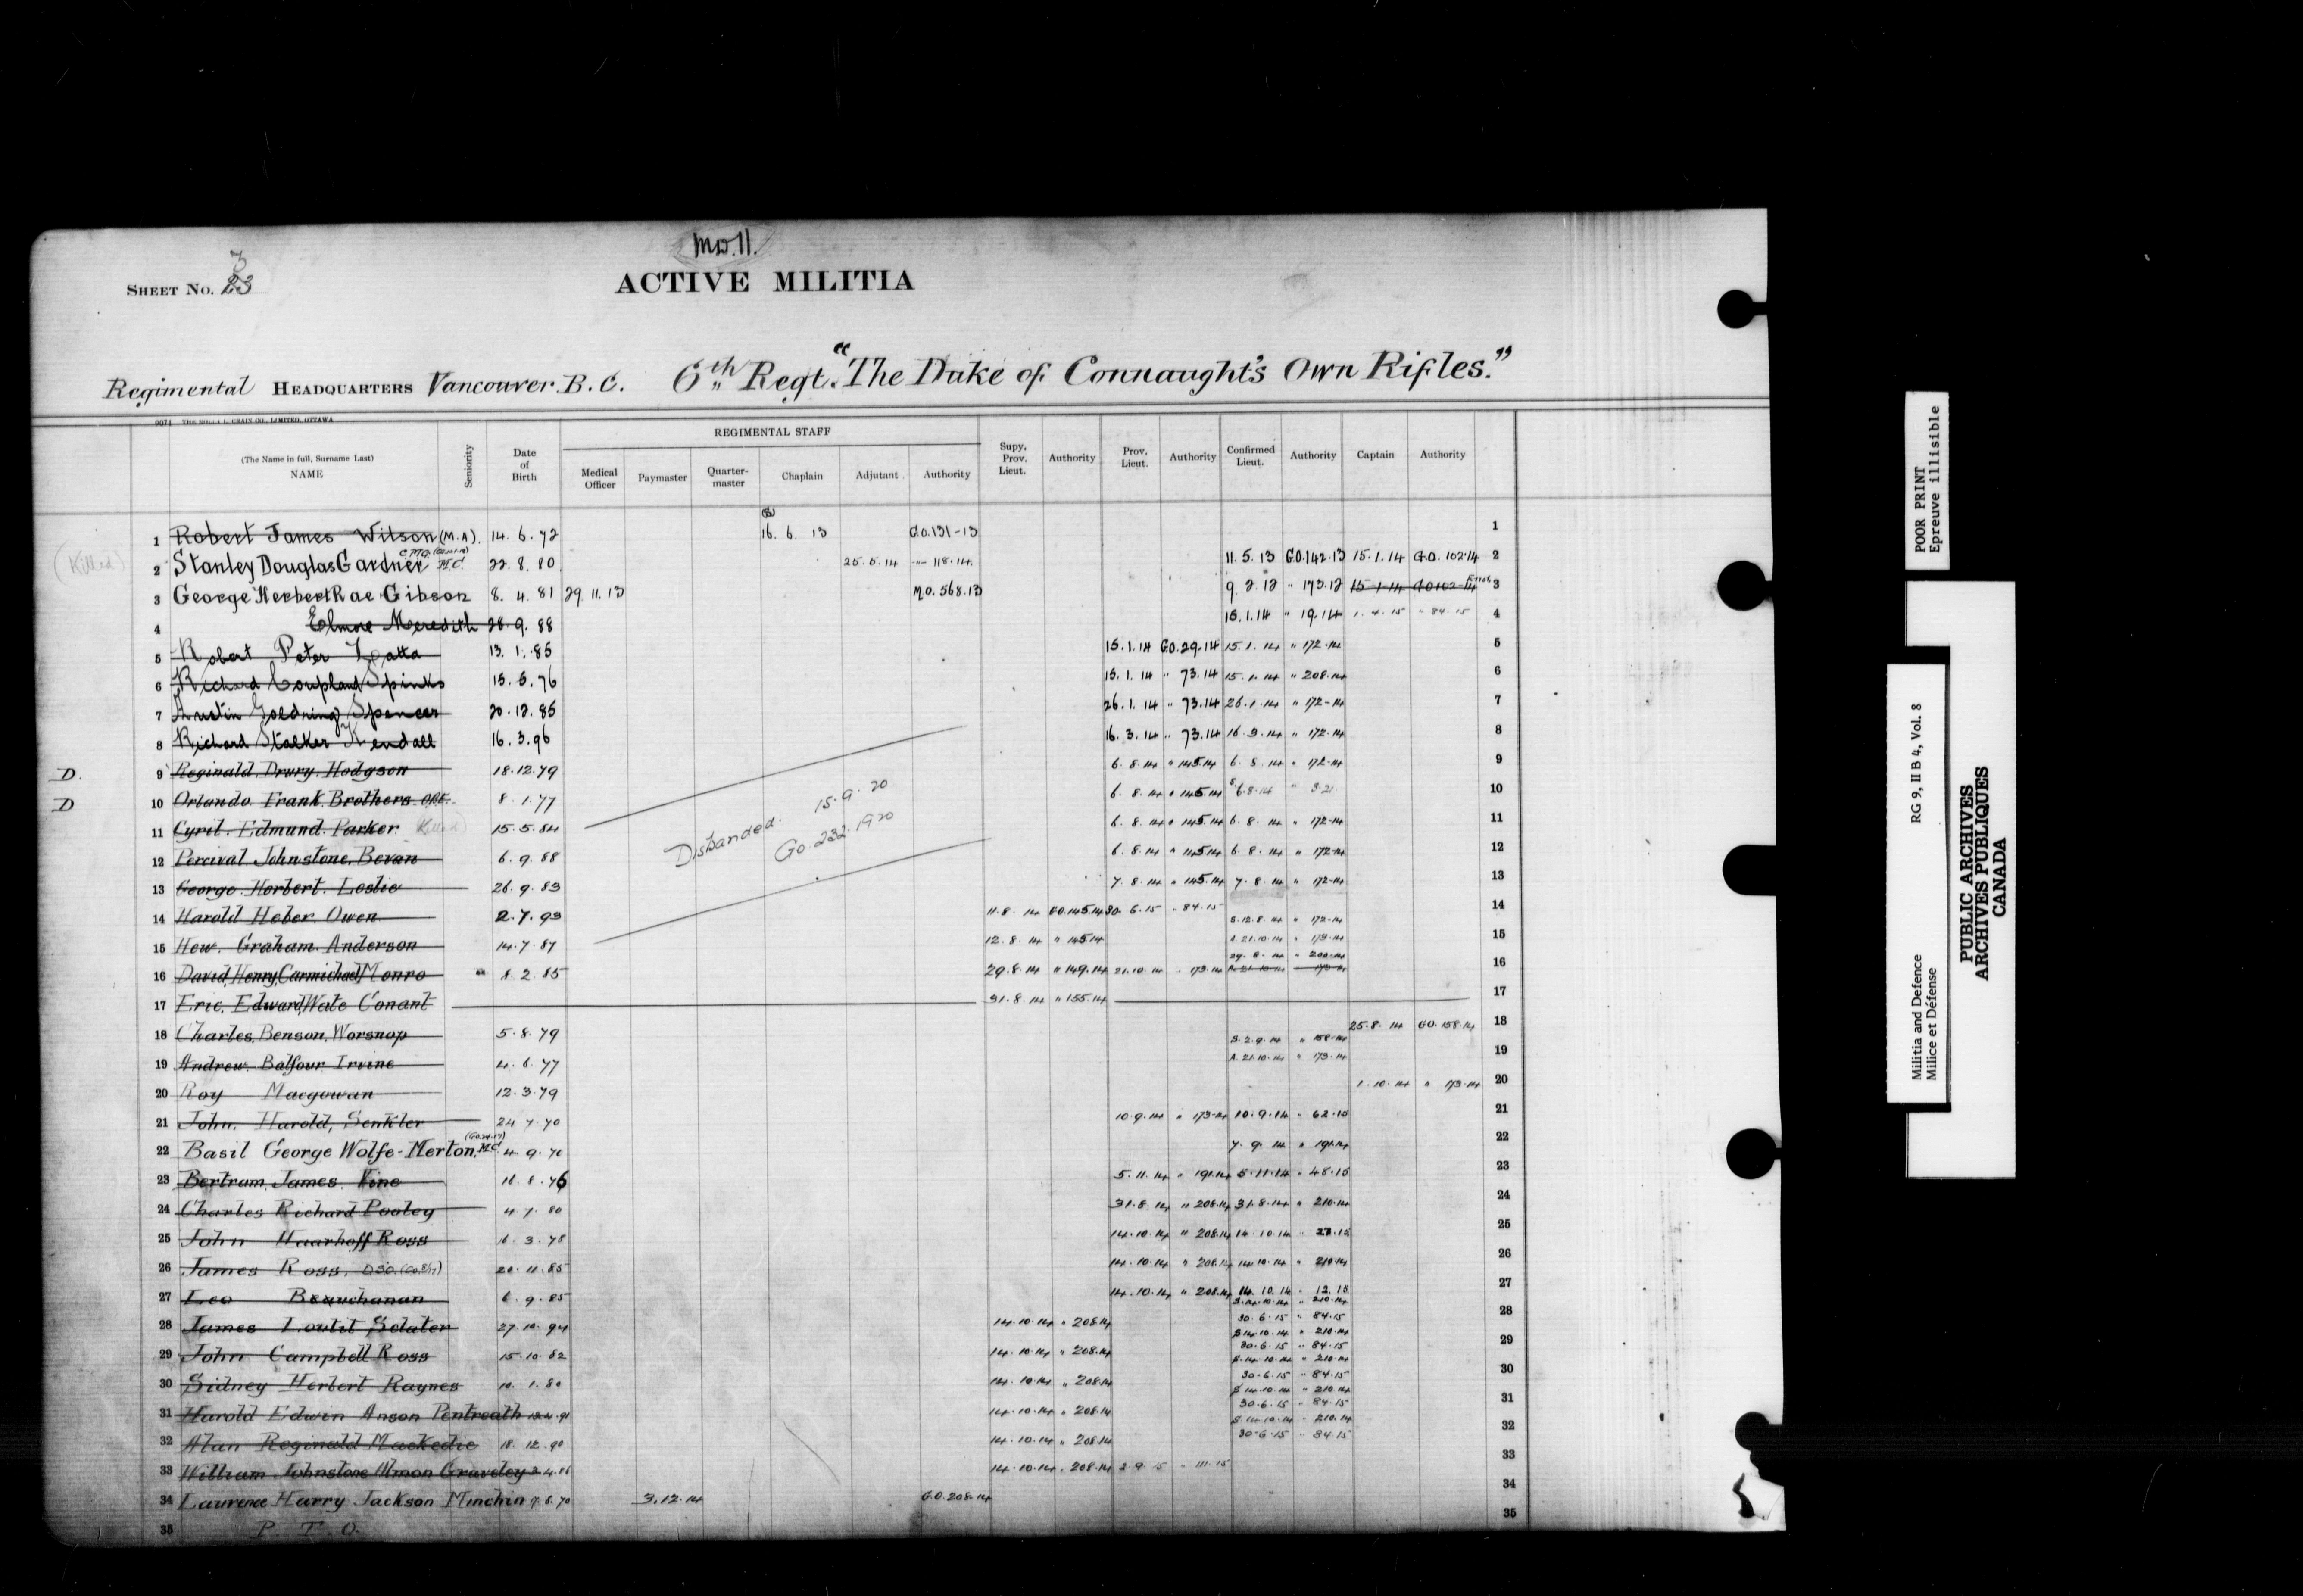 MD.11.
SHEET NO. 23 3
ACTIVE MILITIA
Regimental HEADQUARTERS Vancouver. B. C. 6th Regt. "The Duke of Connaught's Own Rifles."
(The Name in full, Surname Last) NAME Seniority Date of Birth REGIMENTAL STAFF Medical Officer Paymaster Quarter-master Chaplain Adjutant Authority Supy. Prov. Lieut. Authority Prov. Lieut. Authority Confirmed Lieut. Authority Captain Authority
1 Robert James Wilson (M.A). 14. 6. 72 16. 6. 13 G.O.131-13 1
(Killed) 2 Stanley Douglas Gardner C.M.G. M.C. 22. 8. 80 25.5.14 118.14 11. 5. 13 G.O.142.13 15.1.14 G.O. 102.14 2
3 George Herbert Rae Gibson 8. 4. 81 29. 11. 13 M.O. 568.13 9. 2. 12 " 173.12 15-1-14 GO102-14 3
4 Elmore Meredith 28. 9. 88 15.1.14 " 19.14 1. 4. 15 " 84. 15 4
5 Robert Peter Latta 13. 1. 85 15.1.14 G.O.29.14 15.1.14 " 172.14 5
6 Richard Coupland Spinks 15. 5. 76 15. 1. 14 " 73.14 15.1.14 " 208.14 6
7 Austin Goldring Spencer 20. 12. 85 26. 1. 14 " 73.14 26.1.14 " 172-14 7
8 Richard Stalker Kendall 16. 3. 96 16. 3. 14 " 73.14 16.3.14 " 172.14 8
D. 9 Reginald Drury Hodgson 18.12.79 6. 8. 14 " 145.14 6. 8. 14 " 172-14 9
D 10 Orlando Frank Brothers OBE. 8. 1. 77 6. 8. 14 " 145.14 6.8.14 " 3.21 10
11 Cyril. Edmund. Parker (Killed) 15. 5. 84 6. 8. 14 " 145.14 6. 8. 14 " 172-14 11
Disbanded. 15.9.20
GO.232.1920
12 Percival Johnstone Bevan 6. 9. 88 6. 8. 14 " 145.14 6. 8. 14 " 172-14 12
13 George. Herbert. Leslie 26. 9. 83 7. 8. 14 " 145.14 7. 8. 14 " 172-14 13
14 Harold Heber. Owen 2. 7. 93 11.8. 14 G.O.145.14 30. 6.15 " 84.15 S.12.8.14 " 172-14 14
15 Hew. Graham. Anderson 14.7.87 12. 8. 14 " 145.14 A 21.10.14 " 173.14 15
16 David, Henry, Carmichael Monro 8. 2. 85 29.8.14 " 149.14 21.10.14 " 173.14 29. 8. 14 " 200.14 16
17 Eric, Edward, Wate Conant 31.8.14 " 155.14 17
18 Charles, Benson, Worsnop 5.8.79 25.8. 14 G.O. 158.14 18
19 Andrew. Balfour Irvine 4. 6. 77 S.2.9.14 " 158.14 A. 21.10.14 " 173.14 19
20 Roy Macgowan 12.3.79 1. 10. 14 " 173.14 20
21 John. Harold, Senkler 24 7 70 10.9.14 " 173.14 10.9.14 " 62.15 21
22 Basil George Wolfe-Merton, M.C. 4. 9. 70 7. 9. 14 " 191.14 22
23 Bertram James Vine 16. 8. 76 5. 11. 14 " 191.14 5.11.14 " 48.15 23
24 Charles Richard Pooley 4 7. 80 31.8. 14 " 208.14 31.8.14 " 210.14 24
25 John Haarhoff Ross 16. 3. 78 14.10.14 " 208.14 14. 10.14 " 27.15 25
26 James Ross, D.S.O. 20. 11. 85 14.10.14 " 208.14 14.10.14 " 210.14 26
27 Leo Beauchanan 6. 9. 85 14.10.14 " 208.14 14. 10. 14 " 12.15 27
28 James Loutit Sclater 27. 10. 94 14.10.14 " 208.14 S.14.10.14 " 210.14 30.6.15 " 84.15 28
29 John Campbell Ross 15.10.82 14.10.14 " 208.14 S.14.10.14 " 210.14 30.6.15 " 84.15 29
30 Sidney Herbert Raynes 10. 1. 80 14.10.14 " 208.14 S.14.10.14 " 210.14 30-6.15 " 84.15 30
31 Harold Edwin Anson Pentreath 14.10.14 " 208.14 S.14.10.14 " 210.14 30.6.15 " 84.15 31
32 Alan Reginald Mackedie 18. 12. 90 14.10.14 " 208.14 S.14.10.14 " 210.14 30-6.15 " 84.15 32
33 William Johnstone Almon Graveley 2.4.86 14.10.14 " 208.14 2.9.15 " 111.15 33
34 Laurence Harry Jackson Minchin 7.6.70 3.12.14 G.O.208.14 34
35 P. T. O. 35
POOR PRINT
Epreuve illisible
Militia and Defence RG 9, II B 4, Vol. 8
Milice et Défense
PUBLIC ARCHIVES
ARCHIVES PUBLIQUES
CANADA